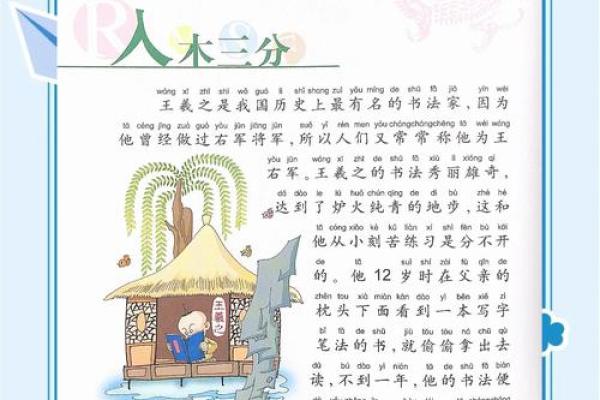 入木三分
wáng xī zhī shì wǒ guó lì shǐ shang zuì yǒu míng de shū fǎ jiā yīn wèi
王羲之是我国历史上最有名的书法家,因为
tā céng jīng zuò guò yòu jūn jiāng jūn suǒ yǐ rén men yòu cháng cháng chēng tā wéi wáng
他曾经做过右军将军,所以人们又常常称他为王
yòu jūn wáng xī zhī de shū fǎ xiù lì xióng qí
右军。王羲之的书法秀丽雄奇,
dá dào le lú huǒ chún qīng de dì bù zhè hé
达到了炉火纯青的地步,这和
tā cóng xiǎo kè kǔ liàn xí shì fēn bù kāi
他从小刻苦练习是分不开
de tā suì shí zài fù qīn de
的。他12岁时在父亲的
zhěn tou xià miàn kàn dào yì běn xiě zì
枕头下面看到一本写字
bǐ fǎ de shū jiù tōu tōu ná chū qù
笔法的书,就偷偷拿出去
dú bú dào yì nián tā de shū fǎ biàn
读,不到一年,他的书法便
王羲之